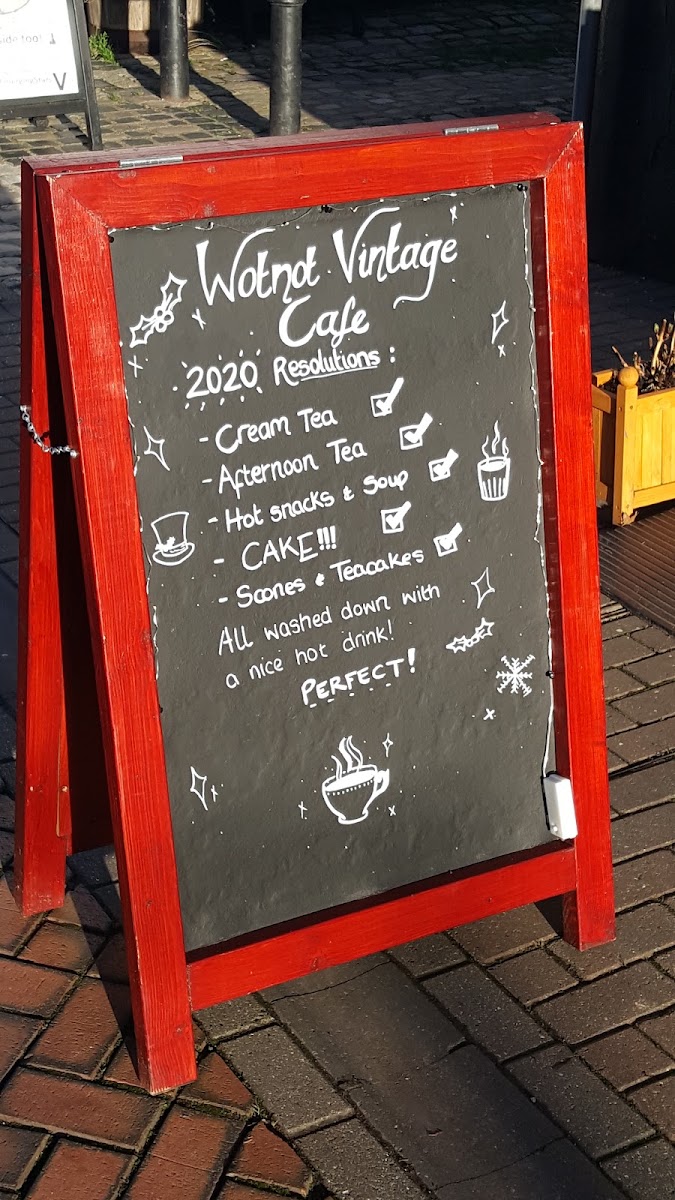 ide too!
V
Wotnot Vintage
Cafe
2020 Resolutions :
- Cream Tea
- Afternoon Tea
- Hot snacks & Soup
- CAKE!!!
- Scones & Teacakes
All washed down with
a nice hot drink!
PERFECT!